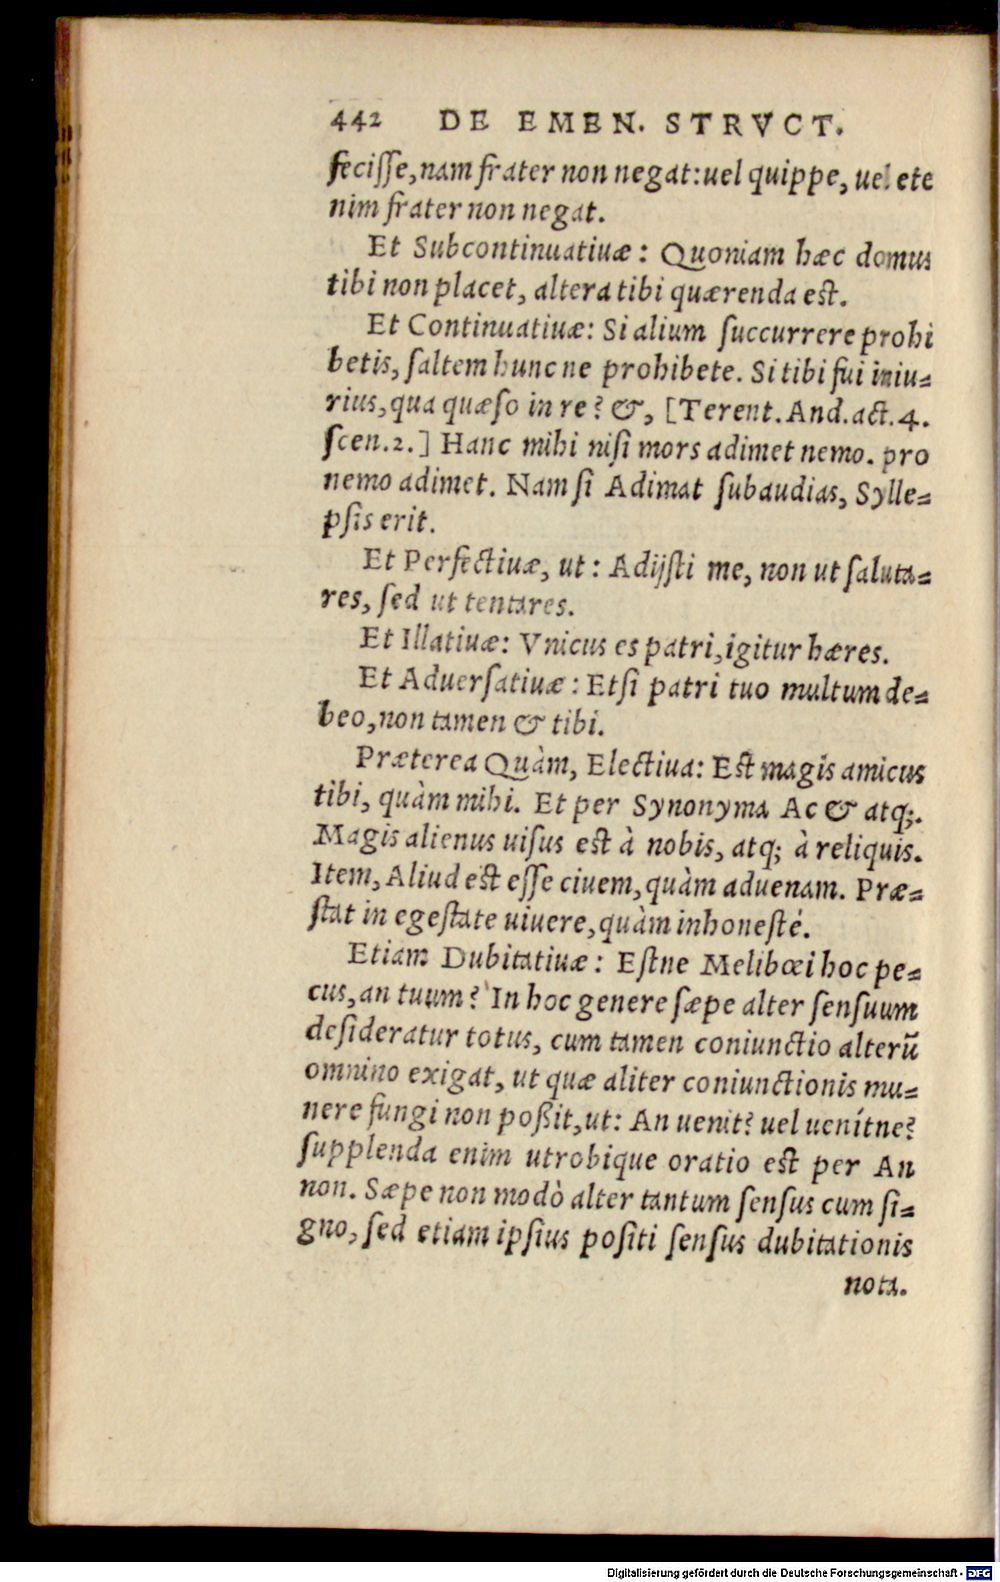 442 DE EMEN. STRVCT.
feciſſe, nam frater non negat: uel quippe, uel ete
nim frater non negat.
Et Subcontinuatiuæ: Quoniam hæc domus
tibi non placet, altera tibi quærenda est.
Et Continuatiuæ: Si alium ſuccurrere prohi
betis, ſaltem hunc ne prohibete. Si tibi fui iniu-
rius, qua quæſo in re? &, [Terent. And. act. 4.
ſcen. 2.] Hanc mihi niſi mors adimet nemo. pro
nemo adimet. Nam ſi Adimat ſubaudias, Sylle-
pſis erit.
Et Perfectiuæ, ut: Adijſti me, non ut ſaluta-
res, ſed ut tentares.
Et Illatiuæ: Vnicus es patri, igitur hæres.
Et Aduerſatiuæ: Etſi patri tuo multum de-
beo, non tamen & tibi.
Præterea Quàm, Electiua: Est magis amicus
tibi, quàm mihi. Et per Synonyma Ac & atq;.
Magis alienus uiſus est à nobis, atq; à reliquis.
Item, Aliud est eſſe ciuem, quàm aduenam. Præ-
ſtat in egeſtate uiuere, quàm inhoneſté.
Etiam Dubitatiuæ: Eſtne Melibœi hoc pe-
cus, an tuum? In hoc genere ſæpe alter ſenſuum
deſideratur totus, cum tamen coniunctio alterũ
omnino exigat, ut quæ aliter coniunctionis mu-
nere fungi non poßit, ut: An uenit? uel uenítne?
ſupplenda enim utrobique oratio est per An
non. Sæpe non modò alter tantum ſenſus cum ſi-
gno, ſed etiam ipſius poſiti ſenſus dubitationis
nota.
Digitalisierung gefördert durch die Deutsche Forschungsgemeinschaft - DFG